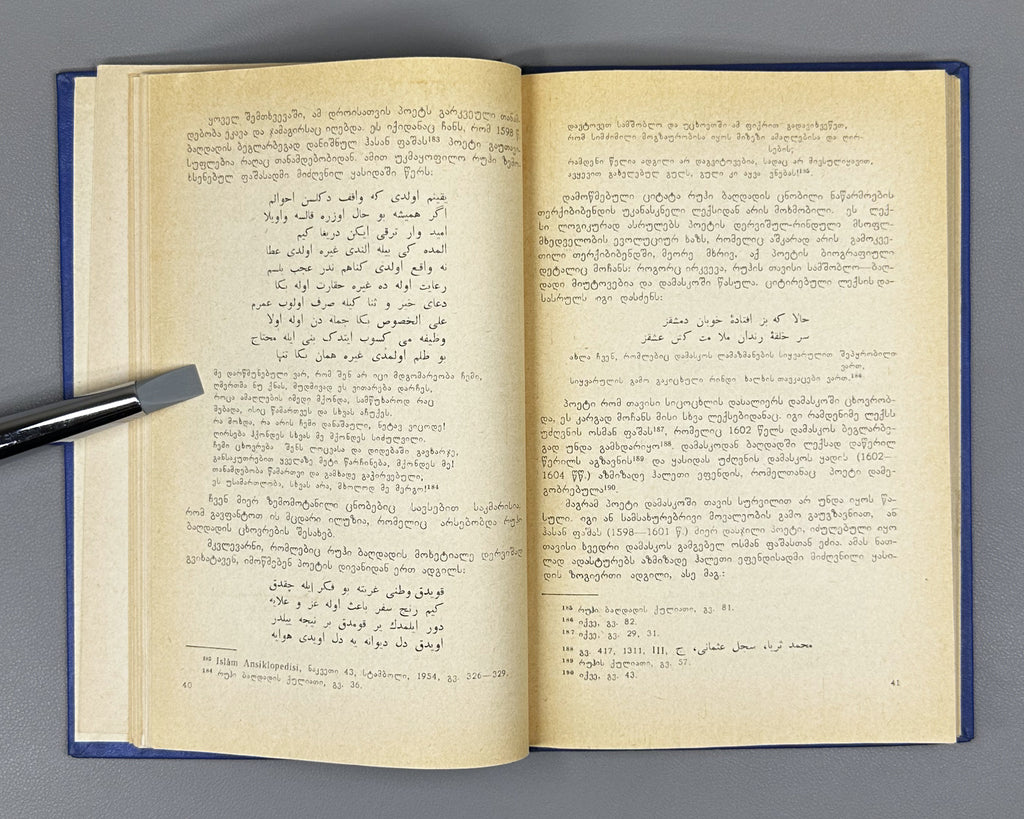 ყოველ შემთხვევაში, ამ დროისათვის პოეტს გარკვეული თანამ-
დებობა ეკავა და ჯამაგირსაც იღებდა. ეს იქიდანაც ჩანს, რომ 1598 წ.
ბაღდადის ბეგლარბეგად დანიშნულ ჰასან ფაშას¹⁸³ პოეტი გაუთავი-
სუფლებია რაღაც თანამდებობიდან. ამით უკმაყოფილო რუჰი ზემო-
ხსენებულ ფაშასადმი მიძღვნილ ყასიდაში წერს:
يقينم اولدى كه واقف دكلسن احوالم
اگر هميشه بو حال اوزره قالسه واويلا
اميد وار ترقى ايكن دريغا كيم
المده كى بيله آلندى غيره اولدى عطا
نه واقع اولدى كناهم ندر عجب بلسم
رعايت اوله ده غيره حقارت اوله بكا
دعاى خير و ثنا كيله صرف اولوب عمرم
على الخصوص بكا جمله دن اوله اولا
وظيفه مى كسوب ايتدك بنى ايله محتاج
بو ظلم اولمدى غيره همان بكا تنها
მე დარწმუნებული ვარ, რომ შენ არ იცი მდგომარეობა ჩემი,
ღმერთმა ნუ ქნას, მუდმივად ეს ვითარება დარჩეს,
როცა ამაღლების იმედი მქონდა, სამწუხაროდ რაც
მებადა, ისიც წამართვეს და სხვას აჩუქეს.
რა მოხდა, რა არის ჩემი დანაშაული, ნეტავ ვიცოდე!
ღირსება ჰქონდეს სხვას მე მქონდეს სიძულვილი.
ჩემი ცხოვრება შენს ლოცვასა და დიდებაში გავხარჯე,
განსაკუთრებით ყველაზე მეტი წარჩინება, მქონდეს მე!
თანამდებობა წამართვი და გამხადე გაჭირვებული,
ეს უსიმართლობა, სხვას არა, მხოლოდ მე მერგო!¹⁸⁴
ჩვენ მიერ ზემომოტანილი ცნობებიც სავსებით საკმარისია,
რომ გავფანტოთ ის მცდარი ილუზია, რომელიც არსებობდა რუჰი
ბაღდადის ცხოვრების შესახებ.
მკვლევარნი, რომლებიც რუჰი ბაღდადის მოხეტიალე დერვიშად
გვიხატავენ, იმოწმებენ პოეტის დივანიდან ერთ ადგილს:
قويدق وطنى غربته بو فكر ايله چقدق
كيم رنج سفر باعث اوله عز و علايه
دور ايلمدك ير قومدق بر نيجه ييلدر
اويدق دل ديوانه يه دل اويدى هوايه
¹⁸³ Islâm Ansiklopedisi, ნაკვეთი 43, სტამბოლი, 1954, გვ. 326—329.
¹⁸⁴ რუჰი ბაღდადის ქულიათი, გვ. 36.
40
დავტოვეთ სამშობლო და უცხოეთში ამ ფიქრით გადავიხვეწეთ,
რომ სიმძიმილი მოგზაურობისა იყოს მიზეზი ამაღლებისა და ღირ-
სების;
რამდენი წელია ადგილი არ დაგვიტოვებია, სადაც არ მივსულიყავით,
ავყევით გახელებულ გულს, გული კი აყვა ვნებას!¹⁸⁵.
დამოწმებული ციტატა რუჰი ბაღდადის ცნობილი ნაწარმოების
თერქიბიბენდის უკანასკნელი ლექსიდან არის მოხმობილი. ეს ლექ-
სი ლოგიკურად ასრულებს პოეტის დერვიშულ-რინდული მსოფლ-
მხედველობის ევოლუციურ ხაზს, რომელიც აშკარად არის გამოკვე-
თილი თერქიბიბენდში, მეორე მხრივ, აქ პოეტის ბიოგრაფიული
დეტალიც მოჩანს: როგორც ირკვევა, რუჰის თავისი სამშობლო—ბაღ-
დადი მიუტოვებია და დამასკოში წასულა. ციტირებული ლექსის და-
სასრულს იგი დასძენს:
حالا كه بز افتادهٔ خوبان دمشقز
سر حلقهٔ رندان ملا مت كش عشقز
ახლა ჩვენ, რომლებიც დამასკოს ლამაზმანების სიყვარულით შეპყრობილი
ვართ,
სიყვარულის გამო გაკიცხული რინდი ხალხის თავკაცები ვართ.¹⁸⁶
პოეტი რომ თავისი სიცოცხლის დასალიერს დამასკოში ცხოვრობ-
და, ეს კარგად მოჩანს მისი სხვა ლექსებიდანაც. იგი რამდენიმე ლექსს
უძღვნის ოსმან ფაშას¹⁸⁷, რომელიც 1602 წელს დამასკოს ბეგლარბე-
გად უნდა გამხდარიყო¹⁸⁸. დამასკოდან ბაღდადში ლექსად დაწერილ
წერილს აგზავნის¹⁸⁹ და ყასიდას უძღვნის დამასკოს ყადის (1602—
1604 წწ.) აზმიზადე ჰალეთი ეფენდის, რომელთანაც პოეტი დამე-
გობრებულა¹⁹⁰.
მაგრამ პოეტი დამასკოში თავის სურვილით არ უნდა იყოს წა-
სული. იგი ან სამსახურებრივი მოვალეობის გამო გაუგზავნიათ, ან
ჰასან ფაშას (1598—1601 წ.) მიერ დასჯილი პოეტი, იძულებული იყო
თავისი ხვედრი დამასკოს გამგებელ ოსმან ფაშასთან ეძია. ამას ნათ-
ლად ადასტურებს აზმიზადე ჰალეთი ეფენდისადმი მიძღვნილი ყასი-
დის ზოგიერთი ადგილი, ასე მაგ.:
¹⁸⁵ რუჰი ბაღდადის ქულიათი, გვ. 81.
¹⁸⁶ იქვე, გვ. 82.
¹⁸⁷ იქვე, გვ. 29, 31.
¹⁸⁸ გვ. 417, 1311, III محمد ثريا، سجل عثمانى، ج
¹⁸⁹ რუჰის ქულიათი, გვ. 57.
¹⁹⁰ იქვე, გვ. 43.
41